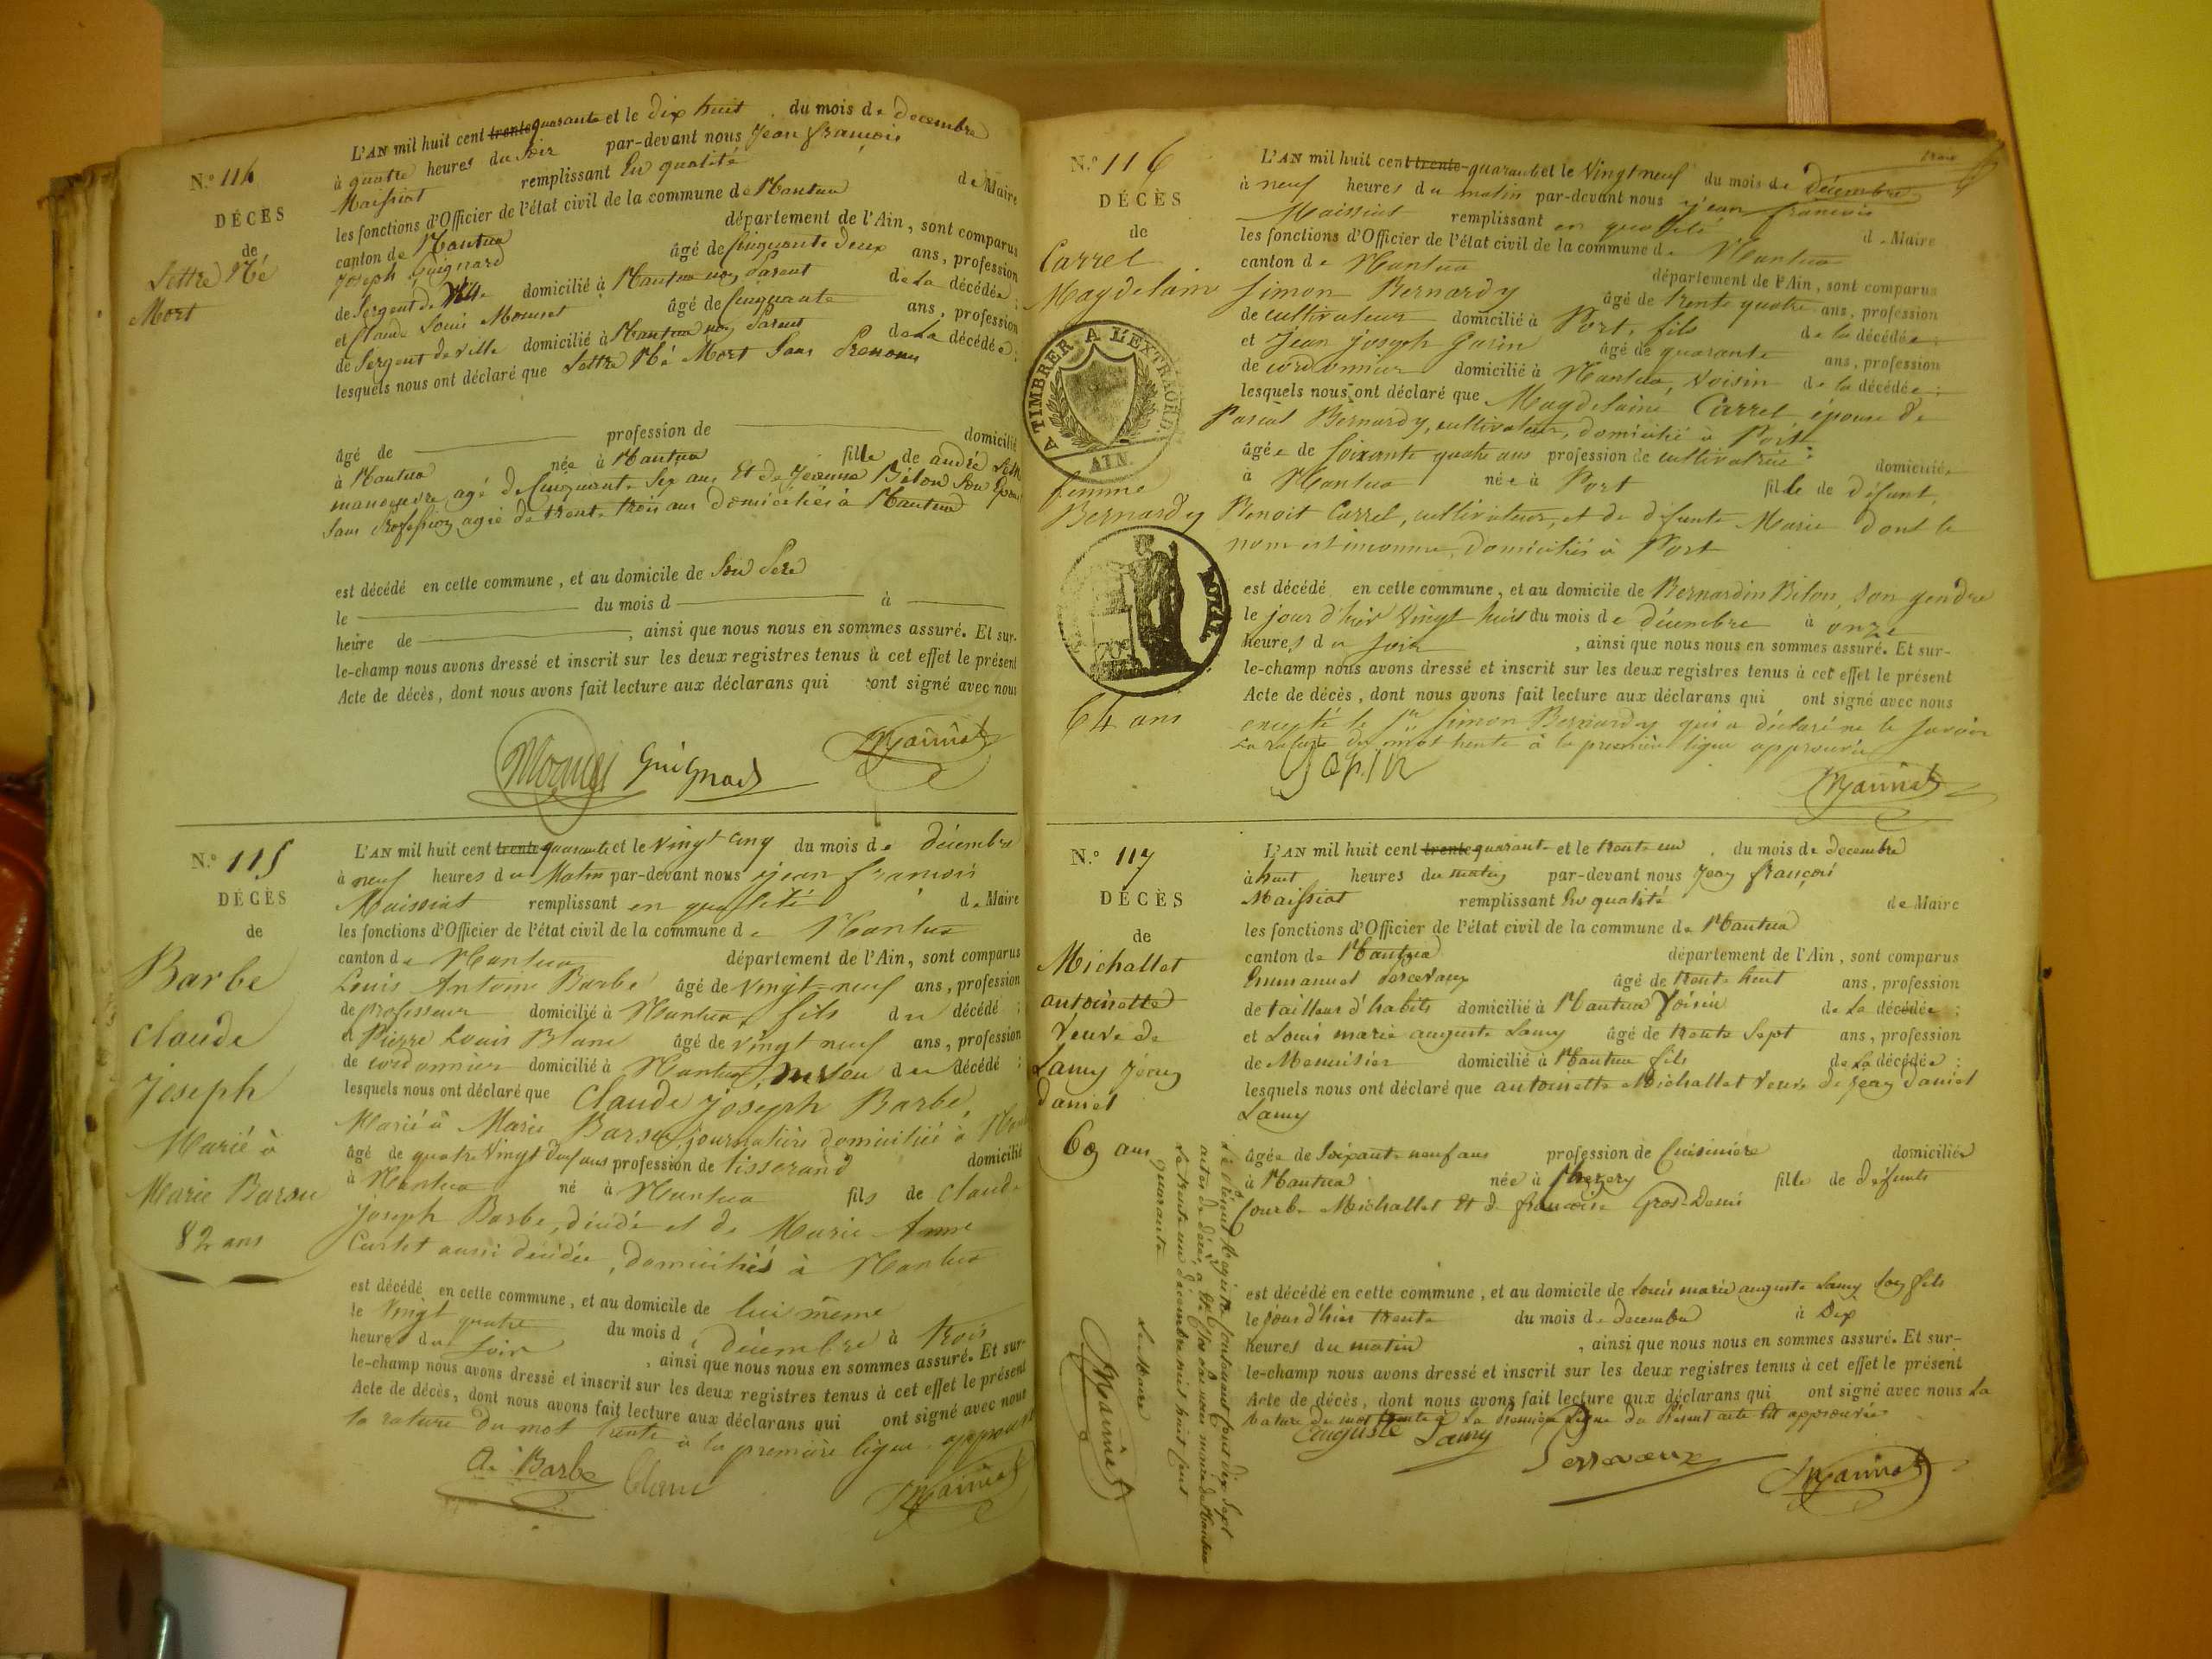 N.° 114
DÉCÈS
de
Lettre Né
Mort
L'AN mil huit cent trente quarante et le dix huit du mois de decembre
à quatre heures du Soir par-devant nous Jean françois
Maissiat remplissant En qualité de Maire
les fonctions d'Officier de l'état civil de la commune de Nantua
canton de Nantua département de l'Ain, sont comparus
Joseph Guignard âgé de Cinquante deux ans, profession
de Sergent de Ville domicilié à Nantua non Parent de La décédée ;
et Claude Louis Mournet âgé de Cinquante ans, profession
de Sergent de ville domicilié à Nantua non Parent de La décédée ;
lesquels nous ont déclaré que Lettre Né Mort Sans Prenoms
âgé de profession de domicilié
à Nantua née à Nantua fille de andré
manoeuvre, agé de Cinquante Six ans Et de Jeanne Béton Son Epouse
Sans Profession, agée de trente trois ans domiciliés à Nantua
est décédé en cette commune, et au domicile de Son Père
le du mois d à
heure de , ainsi que nous nous en sommes assuré. Et sur-
le-champ nous avons dressé et inscrit sur les deux registres tenus à cet effet le présent
Acte de décès, dont nous avons fait lecture aux déclarans qui ont signé avec nous
Guignard
N.° 115
DÉCÈS
de
Barbe
Claude
Joseph
Marié à
Marie Barsu
82 ans
L'AN mil huit cent trente quarante et le vingt cinq du mois de décembre
à neuf heures du Matin par-devant nous jean françois
Maissiat remplissant en qualité de Maire
les fonctions d'Officier de l'état civil de la commune de Nantua
canton de Nantua département de l'Ain, sont comparus
Louis Antoine Barbe âgé de vingt-neuf ans, profession
de professeur domicilié à Nantua, fils du décédé ;
et Pierre Louis Blanc âgé de vingt neuf ans, profession
de cordonnier domicilié à Nantua, du décédé ;
lesquels nous ont déclaré que Claude Joseph Barbe,
Marié à Marie Barsu journalière domiciliée à
âgé de quatre vingt deux ans profession de tisserand domicilié
à Nantua né à Nantua fils de Claude
joseph Barbe, décédé et de Marie Anne
Curtet aussi décédée, domiciliés à Nantua
est décédé en cette commune, et au domicile de lui même
le vingt quatre du mois de décembre à trois
heures du soir , ainsi que nous nous en sommes assuré. Et sur-
le-champ nous avons dressé et inscrit sur les deux registres tenus à cet effet le présent
Acte de décès, dont nous avons fait lecture aux déclarans qui ont signé avec nous
la rature du mot trente à la première ligne approuvée
A. Barbe Blanc
N.° 116
DÉCÈS
de
Carrel
Magdelaine
A TIMBRER A L'EXTRAORD.
AIN
femme
Bernardy
ROYAL
64 ans
L'AN mil huit cent trente quarante et le vingt neuf du mois de décembre
à neuf heures du matin par-devant nous jean françois
Maissiat remplissant en qualité de Maire
les fonctions d'Officier de l'état civil de la commune de Nantua
canton de Nantua département de l'Ain, sont comparus
Simon Bernardy âgé de trente quatre ans, profession
de cultivateur domicilié à Port, fils de la décédée ;
et Jean joseph Garin âgé de quarante ans, profession
de cordonnier domicilié à Nantua, voisin de la décédée ;
lesquels nous ont déclaré que Magdelaine Carrel épouse de
Pascal Bernardy, cultivateur, domicilié à Port
âgée de soixante quatre ans profession de cultivatrice domiciliée
à Nantua née à Port fille de défunt
Benoit Carrel, cultivateur, et de défunte Marie dont le
nom est inconnu, domiciliés à Port
est décédé en cette commune, et au domicile de Bernardin Biton, son gendre
le jour d'hier vingt huit du mois de décembre à onze
heures du soir , ainsi que nous nous en sommes assuré. Et sur-
le-champ nous avons dressé et inscrit sur les deux registres tenus à cet effet le présent
Acte de décès, dont nous avons fait lecture aux déclarans qui ont signé avec nous
excepté le Sr. Simon Bernardy qui a déclaré ne le savoir
La rature du mot trente à la première ligne approuvée
N.° 117
DÉCÈS
de
Michallet
antoinette
Veuve de
Lamy Jean
daniel
69 ans
L'AN mil huit cent trente quarante et le trente un du mois de decembre
à huit heures du matin par-devant nous Jean françois
Maissiat remplissant En qualité de Maire
les fonctions d'Officier de l'état civil de la commune de Nantua
canton de Nantua département de l'Ain, sont comparus
Emmanuel âgé de trente huit ans, profession
de tailleur d'habits domicilié à Nantua Voisin de La décédée ;
et Louis marie auguste Lamy âgé de trente Sept ans, profession
de Menuisier domicilié à Nantua fils de La décédée ;
lesquels nous ont déclaré que antoinette Michallet Veuve de Jean daniel
Lamy
âgée de Soixante neuf ans profession de Cuisinière domiciliée
à Nantua née à fille de défunts
Michallet Et de françoise Gros-Denis
est décédé en cette commune, et au domicile de Louis marie auguste Lamy Son fils
le jour d'hier trente du mois de decembre à Dix
heures du matin , ainsi que nous nous en sommes assuré. Et sur-
le-champ nous avons dressé et inscrit sur les deux registres tenus à cet effet le présent
Acte de décès, dont nous avons fait lecture aux déclarans qui ont signé avec nous La
Rature du mot trente à La Première Ligne du Présent acte Est approuvée
auguste Lamy
Le Présent Registre Contenant Cent dix Sept
actes de décès, a été Clos par nous maire de Nantua
Le trente un decembre mil huit Cent
quarante
Le Maire